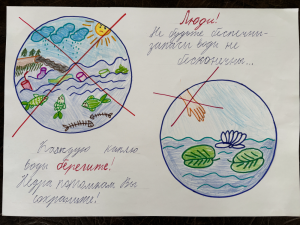 Люди!
Не будьте беспечны-
запасы воды не
бесконечны...
Каждую каплю
воды берегите!
Недра потомкам Вы
сохраните!